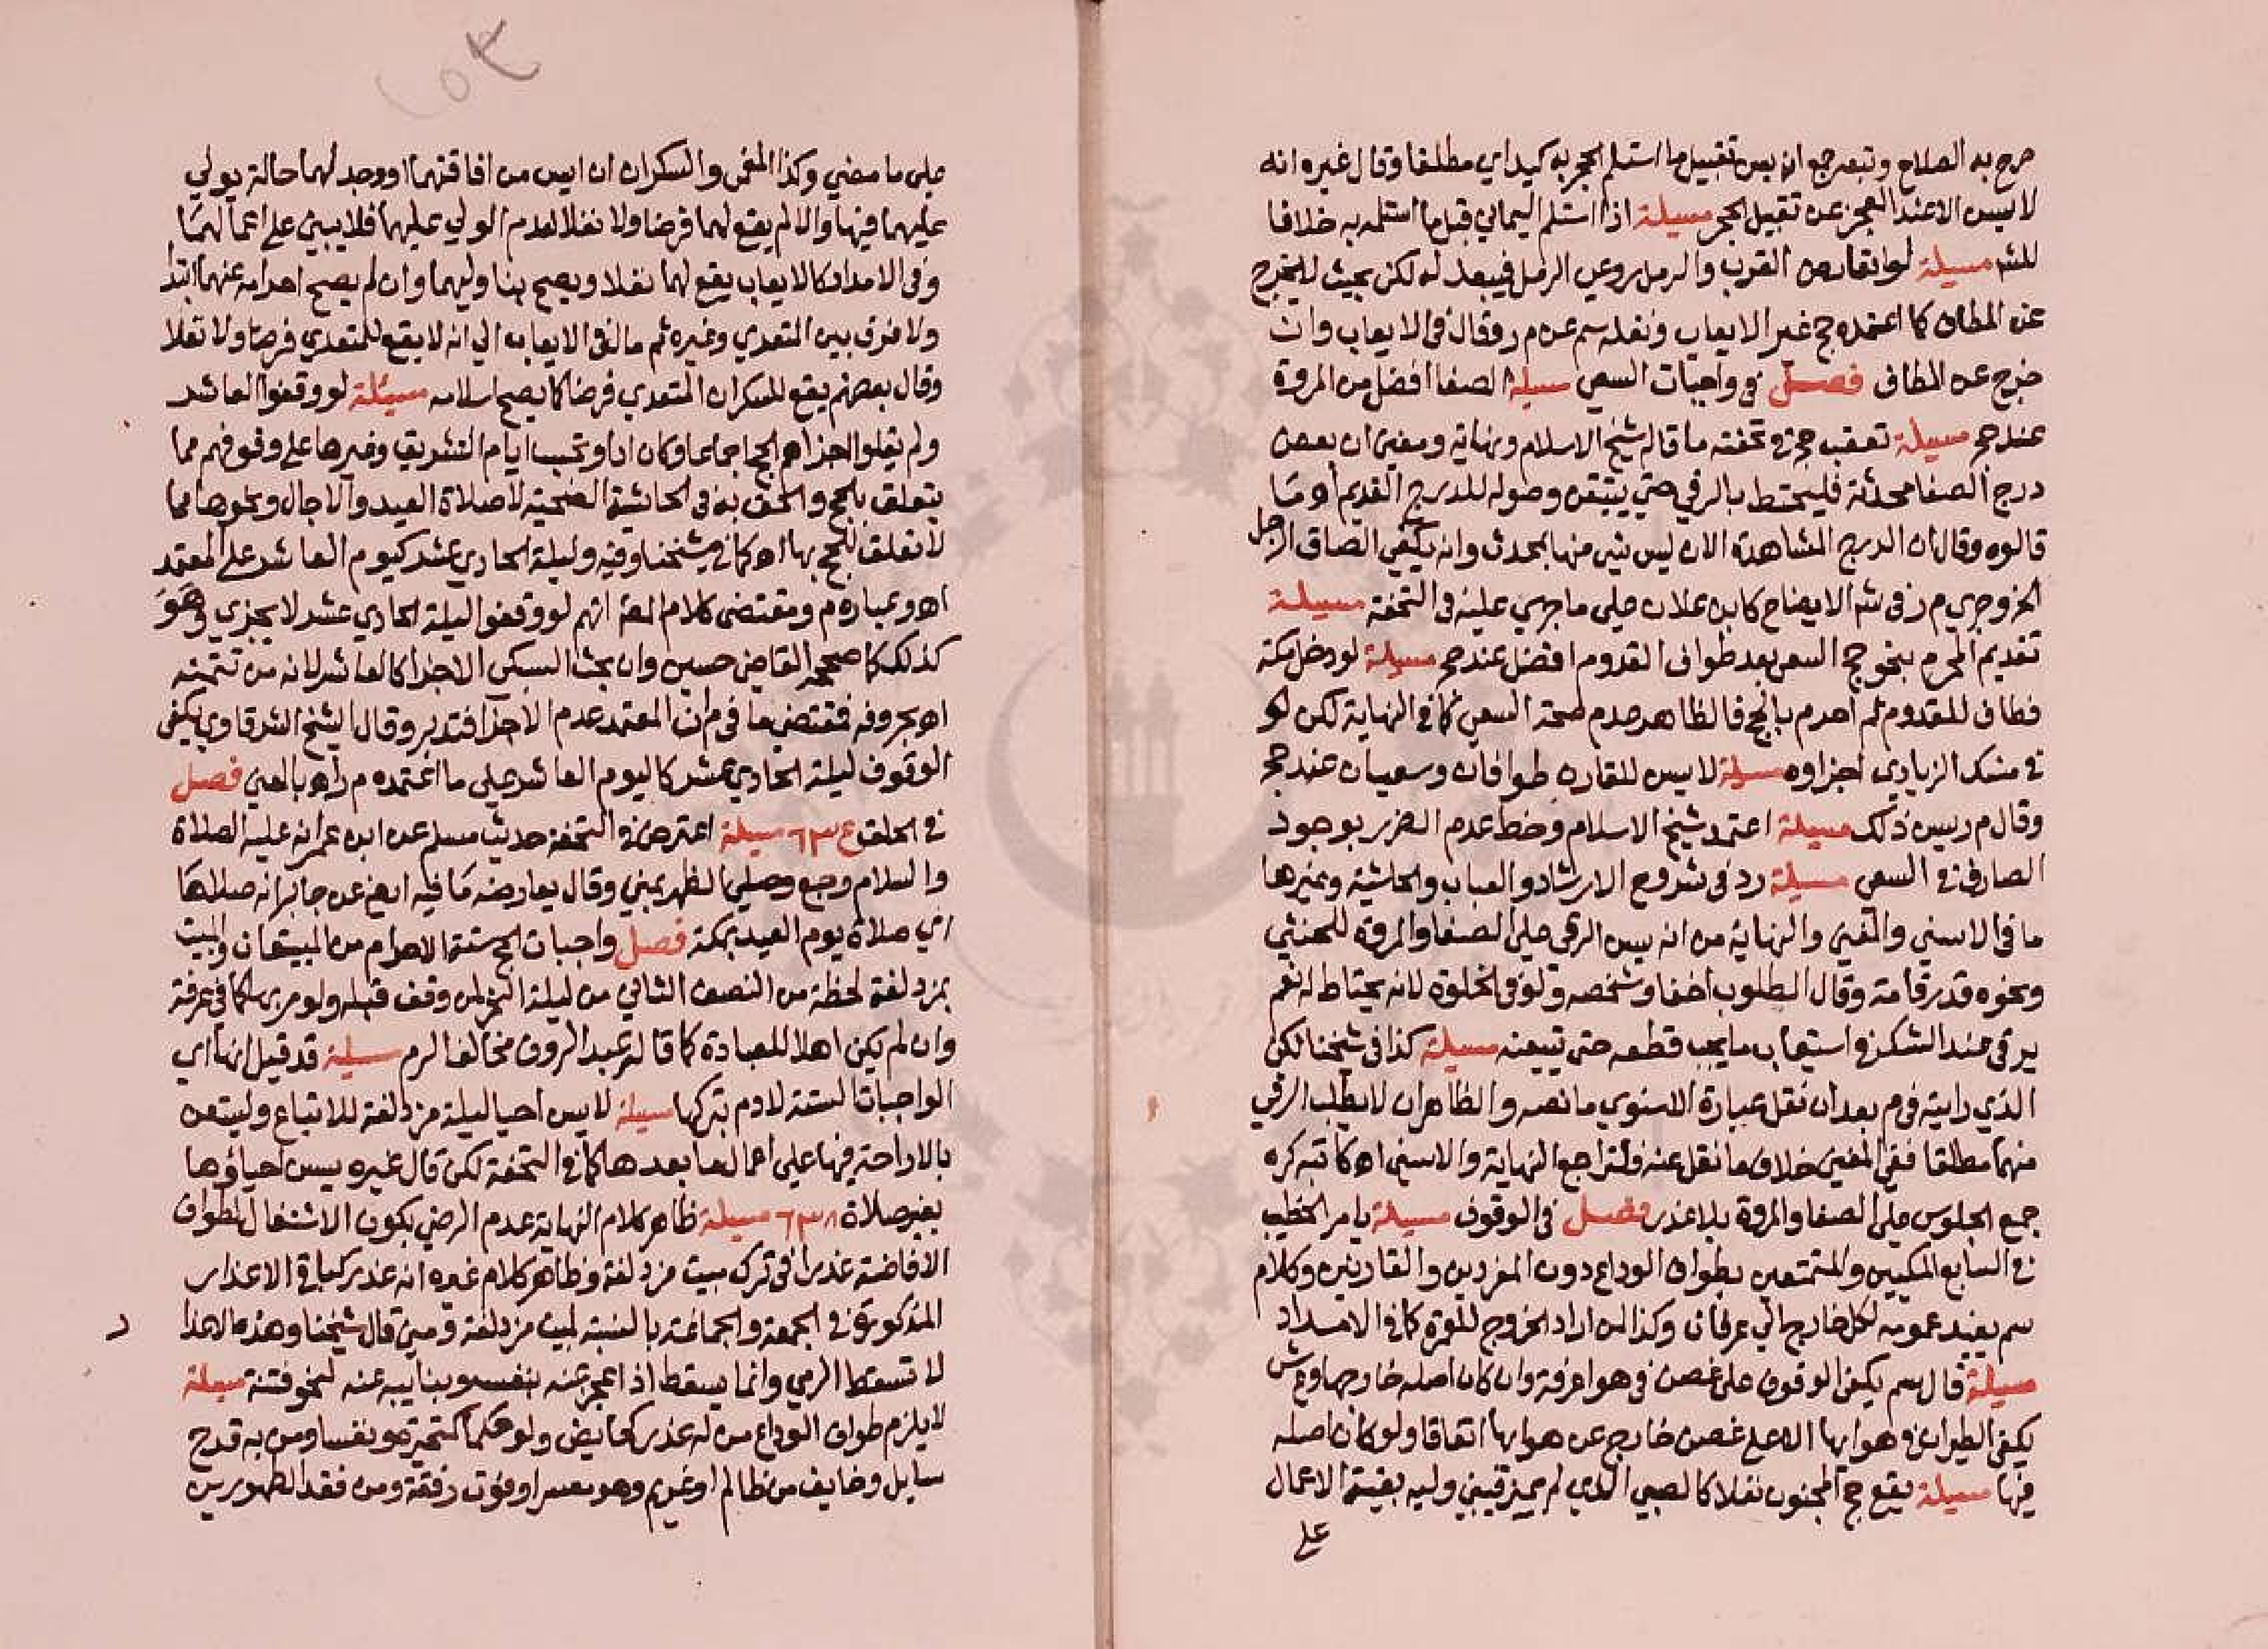 صرح به الصلاح وتبعه حج انه يسن تقبيل ما استلم الحجر به كيد اي مطلقا وقال غيره انه
لا يسن الا عند العجز عن تقبيل الحجر مسيلة اذا استلم اليماني قبل ما استلمه به خلافا
للشم مسيلة لو تعارض القرب والرمل روعي الرمل فيبعد له لكن بحيث لا يخرج
عن المطاف كما اعتمده حج غير الايعاب ونقله سم عن م ر وقال في الايعاب وان
خرج عن المطاف فصل في واجبات السعي مسيلة الصفا افضل من المروة
عند حج مسيلة تعقب حج في تحفته ما قاله شيخ الاسلام ونهاية ومغني ان بعض
درج الصفا محدثة فليحتط بالرقي حتى يتيقن وصوله للدرج القديم اه وما
قالوه وقال ان الدرج المشاهدة الان ليس شي منها بمحدث وانه يكفي الصاق الرجل
الخ وجري م ر في شر الايضاح كابن علان علي ما جري عليه في التحفة مسيلة
تقديم المحرم بنحو حج السعي بعد طواف القدوم افضل عند حج مسيلة لو دخل مكة
فطاف للقدوم ثم احرم بالحج فالظاهر عدم صحة السعي كما في النهاية لكن لو
في منسك الزيادي اجزاوه مسيلة لا يسن للقارن طوافان وسعيان عند حج
وقال م ر يسن ذلك مسيلة اعتمد شيخ الاسلام وخط عدم الضرر بوجود
الصارف في السعي مسيلة رد في شروح الارشاد والعباب والحاشية وغيرها
ما في الاسني والمغني والنهاية من انه يسن الرقي علي الصفا والمروة للخنثي
ونحوه قدر قامة وقال المطلوب اخفا وشخصه ولو في الخلوة لانه يحتاط له نعم
يرقي عند الشك في استيعاب ما يجب قطعه حتى تيقنه مسيلة كذا في شيخنا لكن
الذي رايته في م بعد ان نقل عبارة الاسنوي ما نصه والظاهر ان لا يطلب الرقي
منهما مطلقا ففي المغني خلاف ما نقل عنه ولتراجع النهاية والاسني اه كاتبه كره
جمع الجلوس علي الصفا والمروة بلا عذر فصل في الوقوف مسيلة يامر الخطيب
في السابع المكيين والمتمتعين بطواف الوداع دون المفردين والقارنين وكلام
سم يفيد عمومه لكل خارج الي عرفات وكذا لمن اراد الخروج للعمرة كما في الامداد
مسيلة قال سم يكفي الوقوف علي غصن في هوا عرفة وان كان اصله خارجها وع ش
يكفي الطيران في هوايها الا علي غصن خارج عن هوايها اتفاقا ولو كان اصله
فيها مسيلة يقع حج المجنون نفلا كالصبي الذي لم يميز فيبني وليه بقية الاعمال
علي
علي ما مضي وكذا المغمي والسكران ان ايس من افاقتهما او وجد لهما حالة يولي
عليهما فيها والا لم يقع لهما فرضا ولا نفلا لعدم الولي عليهما فلا يبني علي اعمالهما
وفي الامداد كالايعاب يقع لهما نفلا ويصح بنا وليهما وان لم يصح احرامه عنهما ابتدا
ولا فرق بين المتعدي وغيره ثم مال في الايعاب الي انه لا يقع للمتعدي فرضا ولا نفلا
وقال بعضهم يقع للسكران المتعدي فرضا كما يصح اسلامه مسئلة لو وقفوا العاشر
ولم يقلوا اجزاهم الحج اجماعا وكان اداء وتحسب ايام التشريق وغيرها علي وقوفهم مما
يتعلق بالحج والحق به في الحاشية الضحية لا صلاة العيد والاجال ونحوها مما
لا تعلق للحج بها اه كما في شيخنا وفيه وليلة الحادي عشر كيوم العاشر علي المعتمد
اه وعبارة م ومقتضي كلام المص انهم لو وقفوا ليلة الحادي عشر لا يجزي وهو
كذلك كما صححه القاضي حسين وان بحث السبكي الاجزا كالعاشر لانه من تتمته
اه بحروفه فمقتضي ما في م ان المعتمد عدم الاجزا فتدبر وقال الشيخ الشرقاوي يكفي
الوقوف ليلة الحادي عشر كاليوم العاشر علي ما اعتمده م ر اه بالمعني فصل
في الحلق مسيلة اعترض في التحفة حديث مسلم عن ابن عمر انه عليه الصلاة
والسلام رجع وصلي الظهر بمني وقال يعارضه ما فيه ايض عن جابر انه صلاها
اي صلاة يوم العيد بمكة فصل واجبات الحج ستة الاحرام من الميقات والمبيت
بمزدلفة لحظة من النصف الثاني من ليلة النحر لمن وقف قبله ولو مر بها كما في عرفة
وان لم يكن اهلا للعبادة كما قاله عبد الروف مخالفا لرم مسيلة قد قيل انها اي
الواجبات الستة لا دم بتركها مسيلة لا يسن احيا ليلة مزدلفة للاتباع وليتعن
بالاراحة فيها علي اعمالها بعدها كما في التحفة لكن قال غيره يسن احياؤها
بغير صلاة مسيلة ظاهر كلام النهاية عدم الرضي بكون الاشتغال بطواف
الافاضة عذرا في ترك مبيت مزدلفة وظاهر كلام غيره انه عذر كباقي الاعذار
المذكورة في الجمعة والجماعة بالنسبة لمبيت مزدلفة ومني قال شيخنا وهذه الاعذا
ر
لا تسقط الرمي وانما يسقط اذا عجز عنه بنفسه وبنايبه عنه لنحو فتنة مسيلة
لا يلزم طواف الوداع من له عذر كحايض ولو حكما كمتحيرة ونفسا ومن به قرح
سايل وخايف من ظالم او غريم وهو معسر او فوت رفقة ومن فقد الطهورين